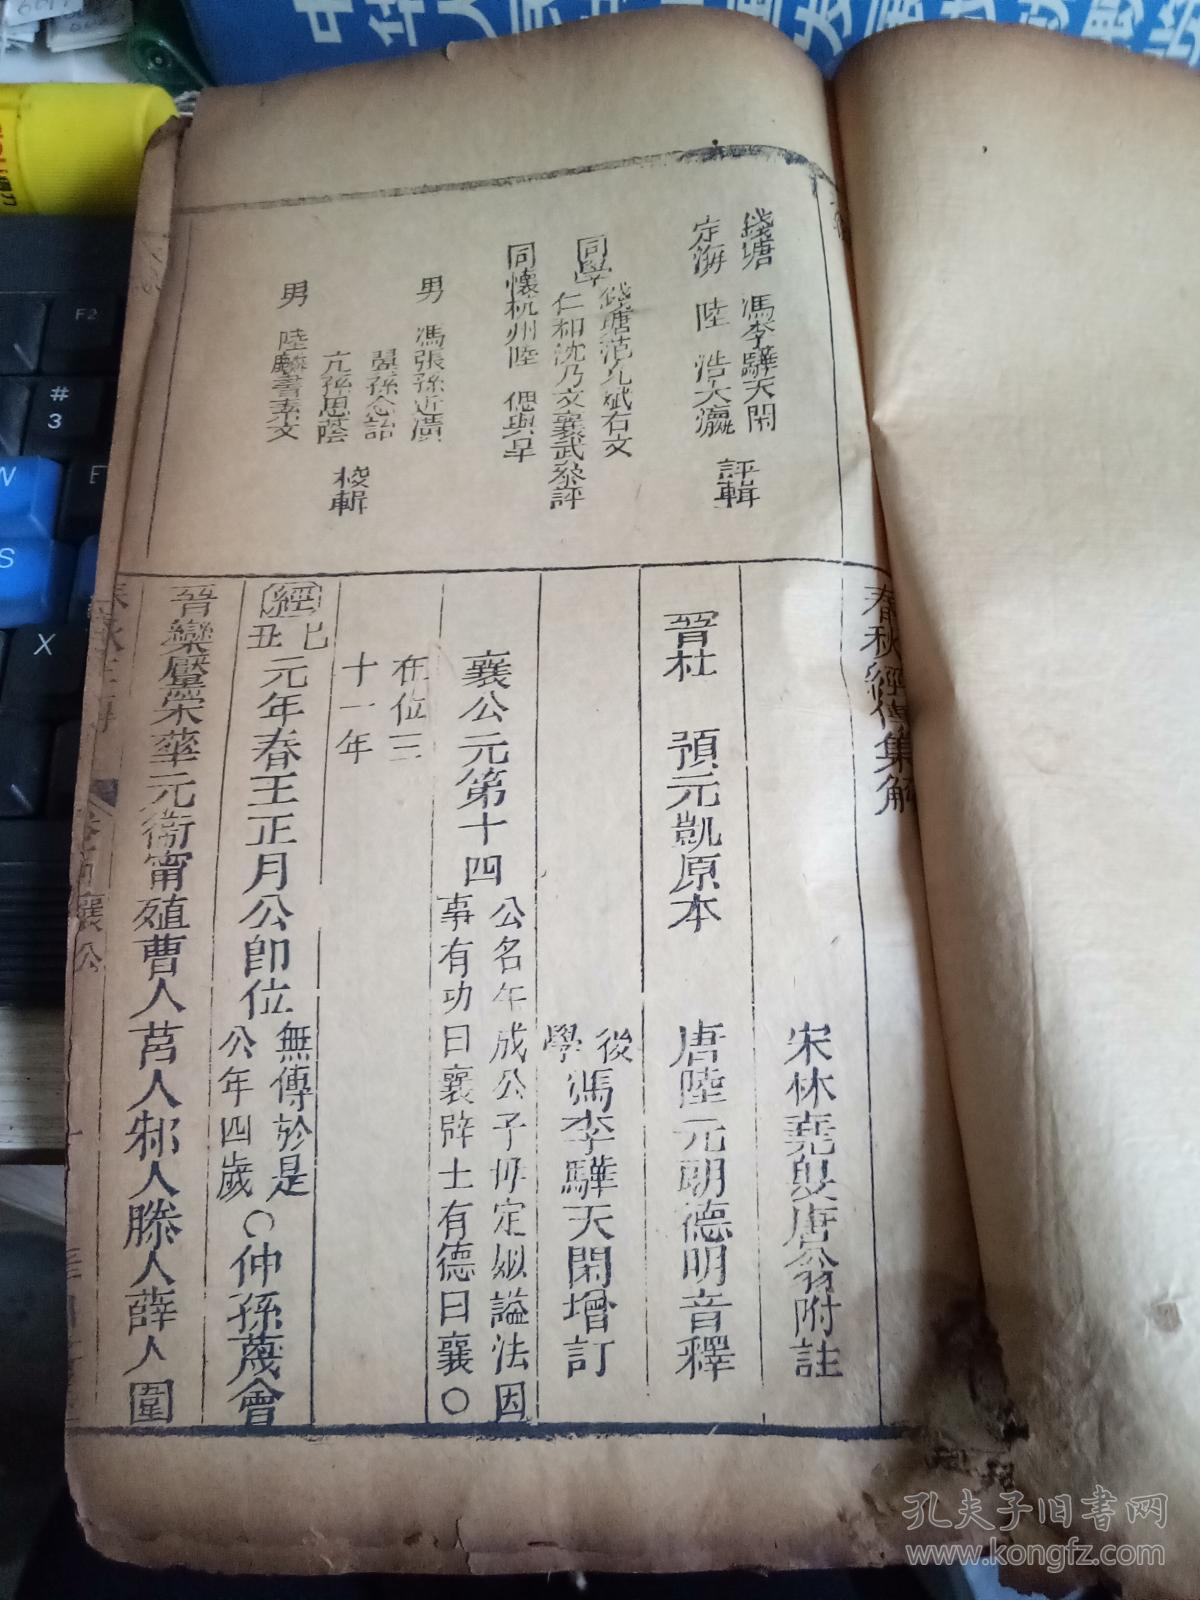 春秋經傳集解
錢塘 馮李驊天閑
定海 陸 浩大瀛
評輯
同學
錢塘范允斌右文
仁和沈乃文襄武叅評
同懷杭州陸 偲與旱
男 馮張孫近潢
翼孫念詒
亢孫思蔭
男 陸麟書素文
校輯
宋林堯叟唐翁附註
晉杜 預元凱原本 唐陸元朗德明音釋
後學馮李驊天閑增訂
襄公元第十四 公名午成公子母定姒謚法因
事有功曰襄辟土有德曰襄○
在位三
十一年
經 己丑 元年春王正月公即位 無傳於是
公年四歲 ○仲孫蔑會
晉欒黶宋華元衞甯殖曹人莒人邾人滕人薛人圍
襄公
F2
#
3
W
E
S
X
孔夫子旧书网
www.kongfz.com